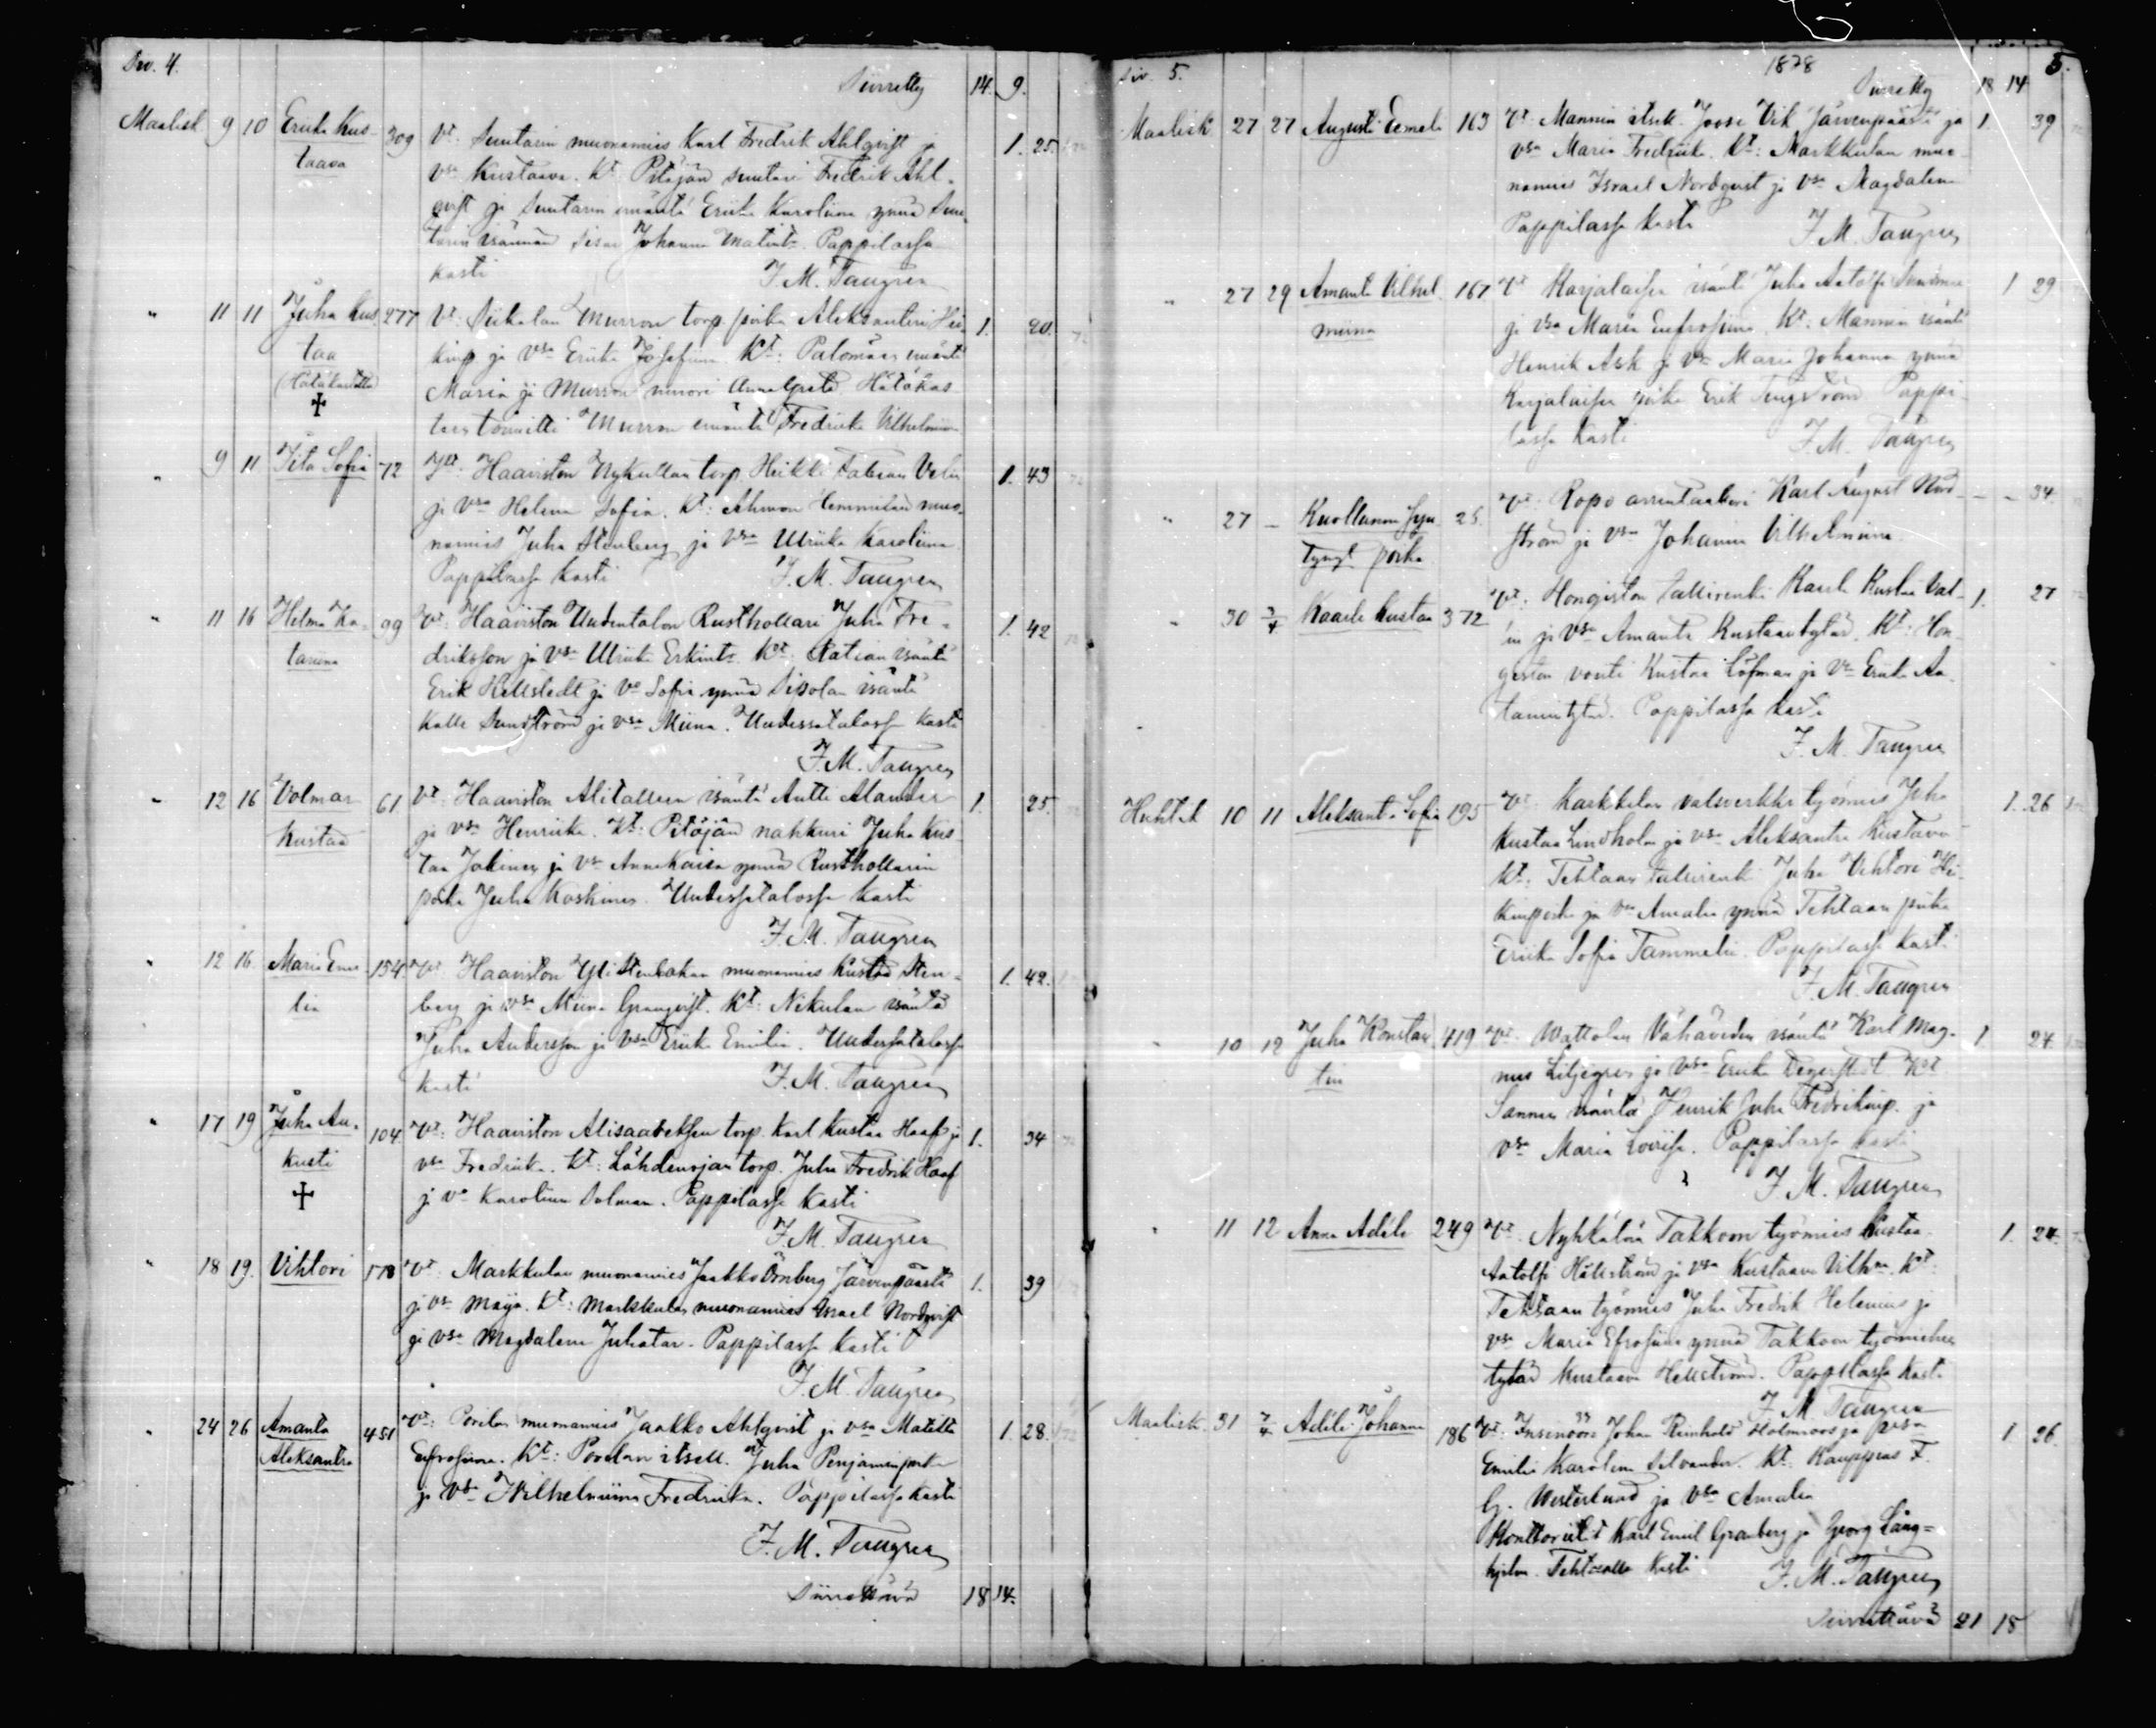 Siv. 4.
Siirretty 14. 9.
Maalisk. 9 10 Erika Kus- 309 Vt: Suutarin muonamies Karl Fredrik Ahlqvist j 1. 25.
taava vsa Kustaava. Kt: Pitäjän suutari Fredrik Ahl-
qvist ja Suutarin emäntä Erika Karolina ynnä Suu-
tarin isännän sisar Johanna Matint. Pappilassa
kasti J. M. Tangren
" 11 11 Juha Kus- 277 Vt: Siikalan Murron torp. poika Aleksanteri Hei- 1. 20.
taa kinp ja vsa Erika Josefina. Kt: Palomäen emäntä
(Hätäkastettu) Maria ja Murron muori Anna Greta. Hätäkas
✝ teen toimitti Murron emäntä Fredrika Vilhelmina
" 9 11 Iita Sofia 72 Vt: Haaviston Nykullan torp. Heikki Fabian Velin 1. 43
ja vsa Helena Sofia. Kt: Ahmon Hemmilän muo-
namies Juha Stenberg ja vsa Ulriika Karoliina
Pappilassa kasti J. M. Tangren
" 11 16 Helma Ka- 99 Vt: Haaviston Uudentalon Rusthollari Juha Fre- 1. 42
tariina driksson ja vsa Ulriika Erkint. Kt: Ratian isäntä
Erik Hellstedt ja vo Sofia ynnä Sipolan isäntä
Kalle Sundström ja vsa Miina. Uudessatalossa kasti
J. M. Tangren
" 12 16 Volmar 61 Vt: Haaviston Alitalleen isäntä Antti Alander 1. 25.
Kustaa ja vsa Henriika. Kt: Pitäjän nahkuri Juha Kus-
taa Jokinen ja vsa Anna Kaisa ynnä Rusthollarin
poika Juha Koskinen. Uudessatalossa kasti
J. M. Tangren
" 12 16 Maria Eme- 154 Vt: Haaviston Yli muonamies Kustaa Sten- 1. 42.
lia berg ja vsa Miina Granqvist. Kt: Nikulan isäntä
Juha Andersson ja vsa Erika Emilia. Uudessatalossa
kasti J. M. Tangren
" 17 19 Juha Au- 104 Vt: Haaviston Alisaareksen torp. Karl Kustaa Haaf ja 1. 34
kusti vsa Fredrika. Kt: Lähdenojan torp. Juha Fredrik Haaf
✝ j vo Karolina Salman. Pappilassa kasti
J. M. Tangren
" 18 19. Vihtori 178 Vt: Markkulan muonamies Jaakko Örnberg Järvenpäästä 1. 39
ja vsa Maija. Kt: Markkulan muonamies Israel Nordqvist
ja vsa Magdalena Juhatar. Pappilassa kasti
J. M. Tangren
" 24 26 Amanta 451 Vt: Porilan muonamies Jaakko Ahlqvist ja vsa Matilta 1. 28.
Aleksantra Eufrosina. Kt: Porilan itsell. Juha Penjaminpoika
ja vsa Wilhelmiina Fredrika. Pappilassa kasti
J. M. Tangren
Siirrettävä 18 14.
Siv. 5. 1878 5.
Siirretty 18 14
Maalisk. 27 27 Augusti Eemeli 163 Vt: Mannin itsell. Joose Vik Järvenpäästä ja 1. 39
vsa Maria Fredriika. Kt: Markkulan muo-
namies Israel Nordqvist ja vsa Magdalena
Pappilassa kasti J. M. Tangren
" 27 29 Amanta Vilhel- 167 Vt: Karjalaisen isäntä Juha Aatolfi 1 29
miina ja vsa Maria Eufrosina. Kt: Mannin isäntä
Henrik Ask ja vsa Maria Johanna ynnä
Karjalaisen poika Erik Tengström Pappi-
lassa kasti J. M. Tangren
" 27 – Kuollunna syn- 25. Vt: Ropo arrentaattori Karl August Nord- – – 34.
tynyt poika ström ja vsa Johanna Vilhelmiina.
" 30 3/4 Kaarle Kustaa 372 Vt: Hongiston tallirenki Kaarle Kustaa Val- 1. 27
in ja vsa Amanta Kustaantytär. Kt: Hon-
giston vouti Kustaa Löfman ja vsa Erika Aa-
tamintytär. Pappilassa kasti
J. M. Tangren
Huhtik 10 11 Aleksanta Sofia 195 Vt: Karkkilan valuverkki työmies Juha 1. 26
Kustaa Lindholm ja vsa Aleksantra Kustava
Kt: Tehtaan tallirenki Juha Vihtori Hei-
kinpoika ja vsa Amalia ynnä Tehtaan piika
Erika Sofia Tammelin. Pappilassa kasti
J. M. Tangren
" 10 12 Juha Konstan- 419 Vt: Wattolan Vähäveden isäntä Karl Mag- 1 24.
tin nus Liljegren ja vsa Erika Degerstedt Kt
Sannin isäntä Henrik Juha Fredrikinp. ja
vsa Maria Loviisa. Pappilassa kasti
J. M. Tangren
" 11 12 Anna Adéle 249 Vt: Nyhkälän Takkoon työmies Kustaa 1. 24.
Aatolfi Hällström ja vsa Kustaava Vilhna. Kt:
Tehtaan työmies Juha Fredrik Helenius ja
vsa Maria Efrosina ynnä Takkoon työmiehen
tytär Kustaava Hellström. Pappilassa kasti
J. M. Tangren
Maalisk. 31 7/4 Adéle Johanna 186 Vt: Insinööri Johan Reinhold Holmroos ja rsa 1. 26.
Emilie Karolina Selvander. Kt. Kauppias F.
G. Westerlund ja vsa Amalia
Konttoristit Karl Emil Granberg ja Georg Lång-
hjelm. Tehtaalla kasti J. M. Tangren
Siirrettävä 21 15